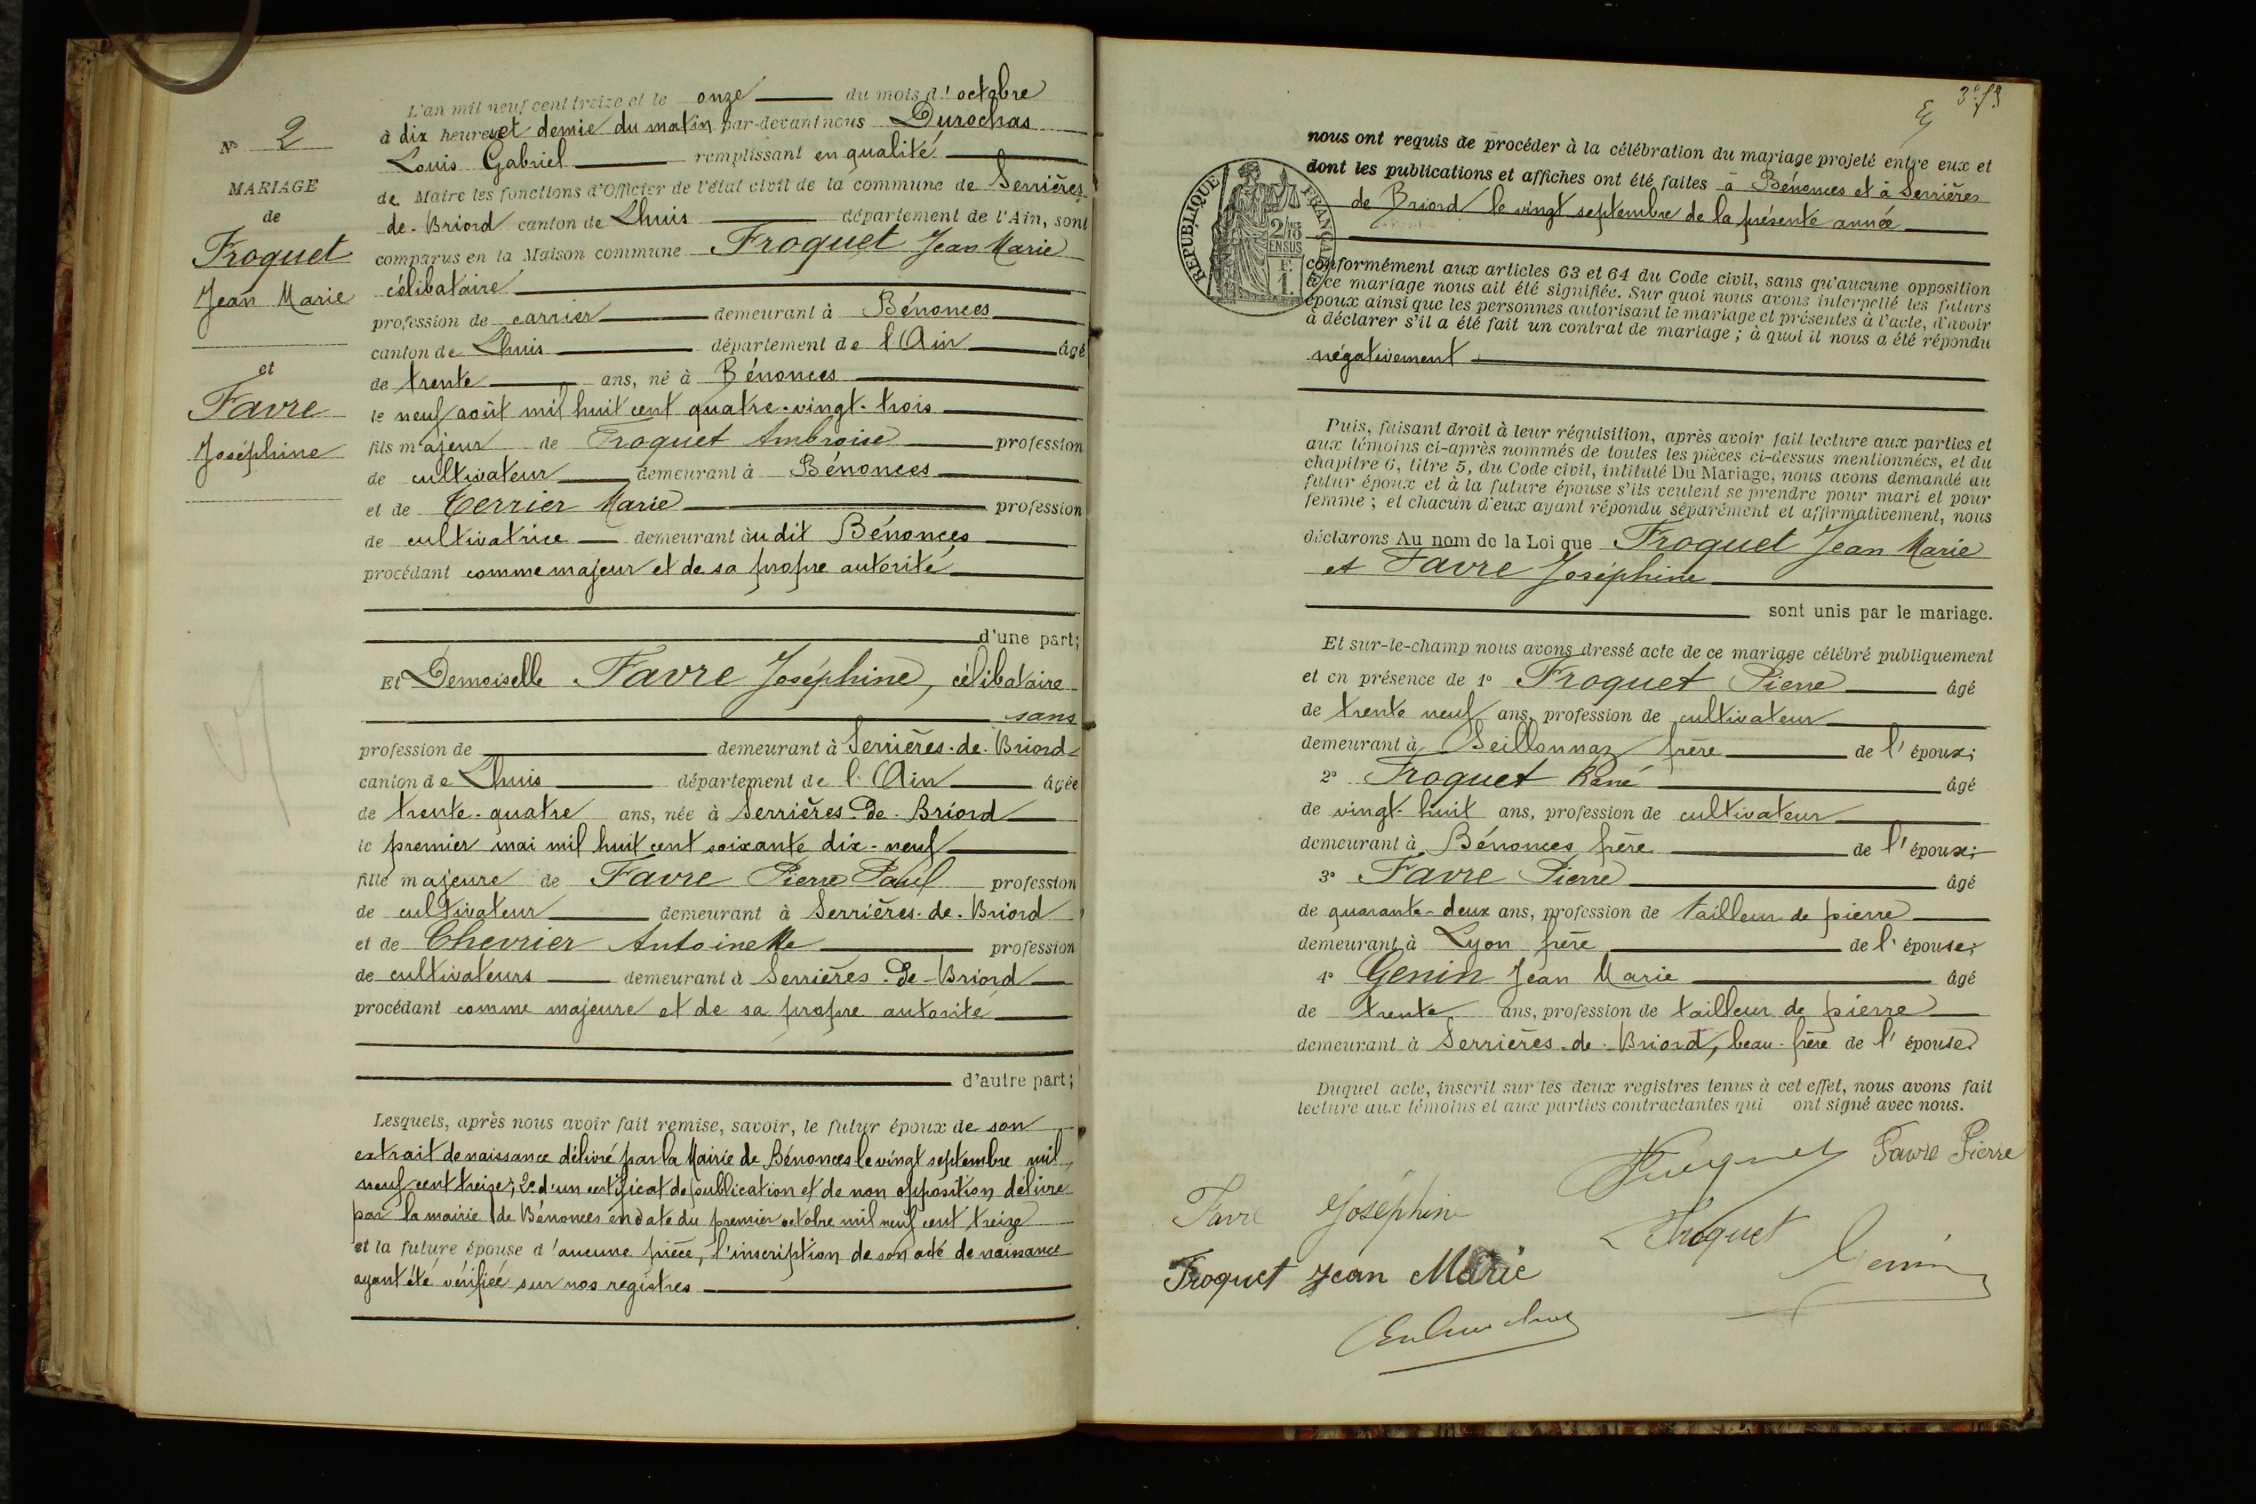 L'an mil neuf cent treize et le onze du mois d'octobre
à dix heures et demie du matin par-devant nous Durochas
Louis Gabriel remplissant en qualité
de Maire les fonctions d'Officier de l'état civil de la commune de Serrières
de-Briord canton de Lhuis département de l'Ain, sont
comparus en la Maison commune Froquet Jean Marie
célibataire
profession de carrier demeurant à Bénonces
canton de Lhuis département de l'Ain âgé
de trente ans, né à Bénonces
le neuf août mil huit cent quatre-vingt-trois
fils majeur de Froquet Ambroise profession
de cultivateur demeurant à Bénonces
et de Terrier Marie profession
de cultivatrice demeurant àudit Bénonces
procédant comme majeur et de sa propre autorité
d'une part;
Et Demoiselle Favre Joséphine, célibataire
sans
profession de demeurant à Serrières-de-Briord
canton de Lhuis département de l'Ain âgée
de trente-quatre ans, née à Serrières-de-Briord
le premier mai mil huit cent soixante dix-neuf
fille majeure de Favre Pierre Paul profession
de cultivateur demeurant à Serrières-de-Briord
et de Chevrier Antoinette profession
de cultivateurs demeurant à Serrières-de-Briord
procédant comme majeure et de sa propre autorité
d'autre part;
Lesquels, après nous avoir fait remise, savoir, le futur époux de son
extrait de naissance délivré par la Mairie de Bénonces le vingt septembre mil
neuf cent treize; 2º d'un certificat de publication et de non opposition délivré
par la mairie de Bénonces en date du premier octobre mil neuf cent treize
et la future épouse d'aucune pièce, l'inscription de son acte de naissance
ayant été vérifiée sur nos registres
Nº 2
MARIAGE
de
Froquet
Jean Marie
et
Favre
Joséphine
nous ont requis de procéder à la célébration du mariage projeté entre eux et
dont les publications et affiches ont été faites à Bénonces et à Serrières
de Briord le vingt septembre de la présente année
RÉPUBLIQUE FRANÇAISE
2/10
EN SUS
F.
1.
conformément aux articles 63 et 64 du Code civil, sans qu'aucune opposition
à ce mariage nous ait été signifiée. Sur quoi nous avons interpellé les futurs
époux ainsi que les personnes autorisant le mariage et présentes à l'acte, d'avoir
à déclarer s'il a été fait un contrat de mariage; à quoi il nous a été répondu
négativement
Puis, faisant droit à leur réquisition, après avoir fait lecture aux parties et
aux témoins ci-après nommés de toutes les pièces ci-dessus mentionnées, et du
chapitre 6, titre 5, du Code civil, intitulé Du Mariage, nous avons demandé au
futur époux et à la future épouse s'ils veulent se prendre pour mari et pour
femme; et chacun d'eux ayant répondu séparément et affirmativement, nous
déclarons Au nom de la Loi que Froquet Jean Marie
et Favre Joséphine
sont unis par le mariage.
Et sur-le-champ nous avons dressé acte de ce mariage célébré publiquement
et en présence de 1º Froquet Pierre âgé
de trente neuf ans, profession de cultivateur
demeurant à Seillonnaz frère de l'époux;
2º Froquet René âgé
de vingt-huit ans, profession de cultivateur
demeurant à Bénonces frère de l'époux;
3º Favre Pierre âgé
de quarante-deux ans, profession de tailleur de pierre
demeurant à Lyon frère de l'épouse;
4º Genin Jean Marie âgé
de trente ans, profession de tailleur de pierre
demeurant à Serrières-de-Briord, beau-frère de l'épouse
Duquel acte, inscrit sur les deux registres tenus à cet effet, nous avons fait
lecture aux témoins et aux parties contractantes qui ont signé avec nous.
Froquet Favre Pierre
Favre Joséphine
Froquet
Froquet Jean Marie
Genin